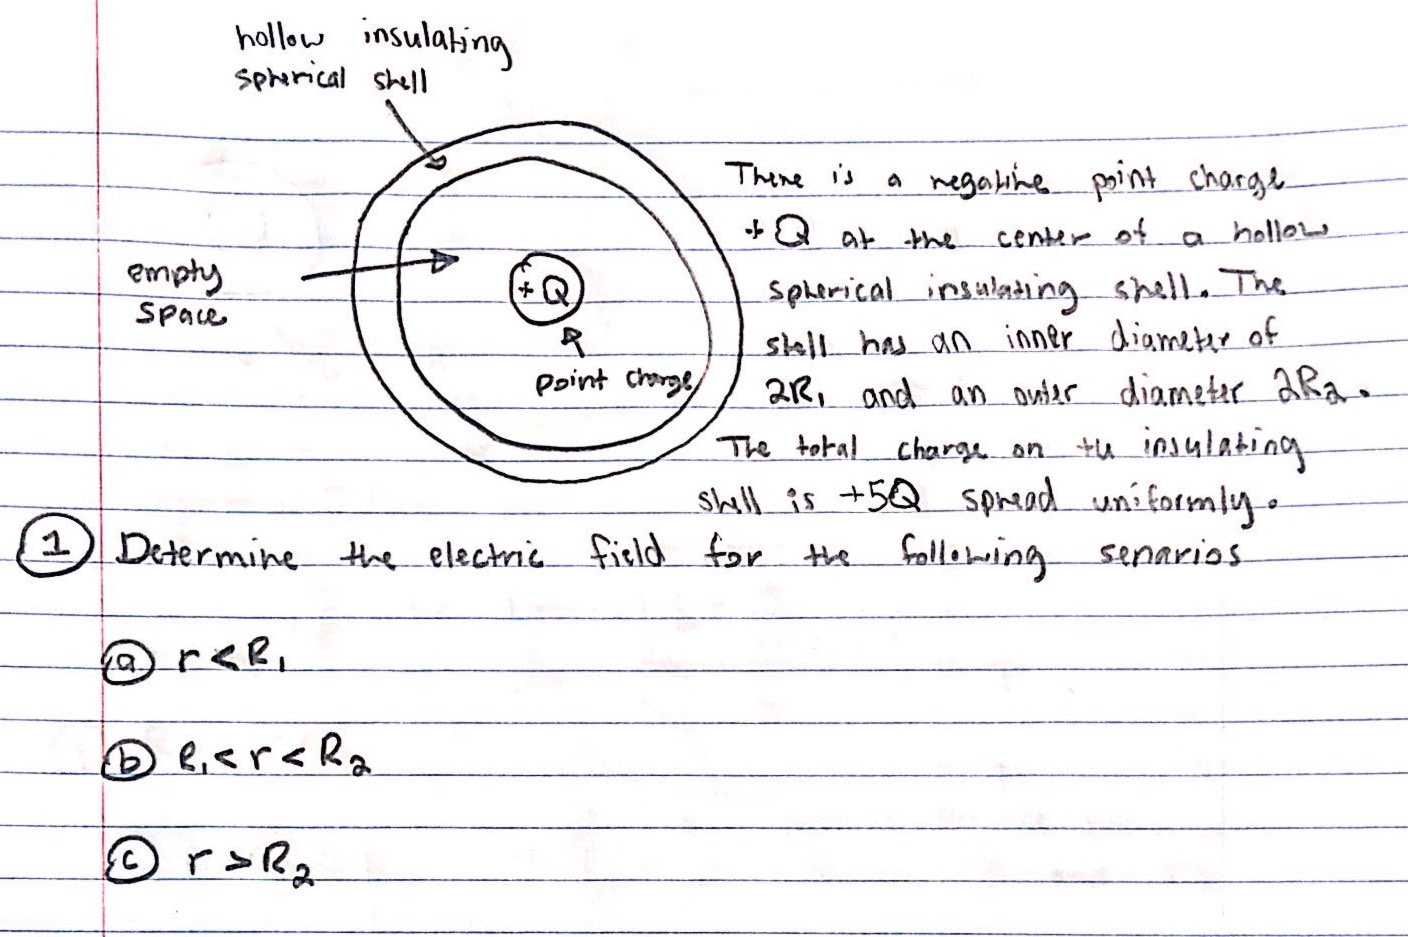 hollow insulating
spherical shell
There is a negative point charge
+Q at the center of a hollow
empty
space
+Q
spherical insulating shell. The
shell has an inner diameter of
point charge
2R₁ and an outer diameter 2R₂.
The total charge on the insulating
shell is +5Q spread uniformly.
1 Determine the electric field for the following senarios
a r < R₁
b R₁ < r < R₂
c r > R₂